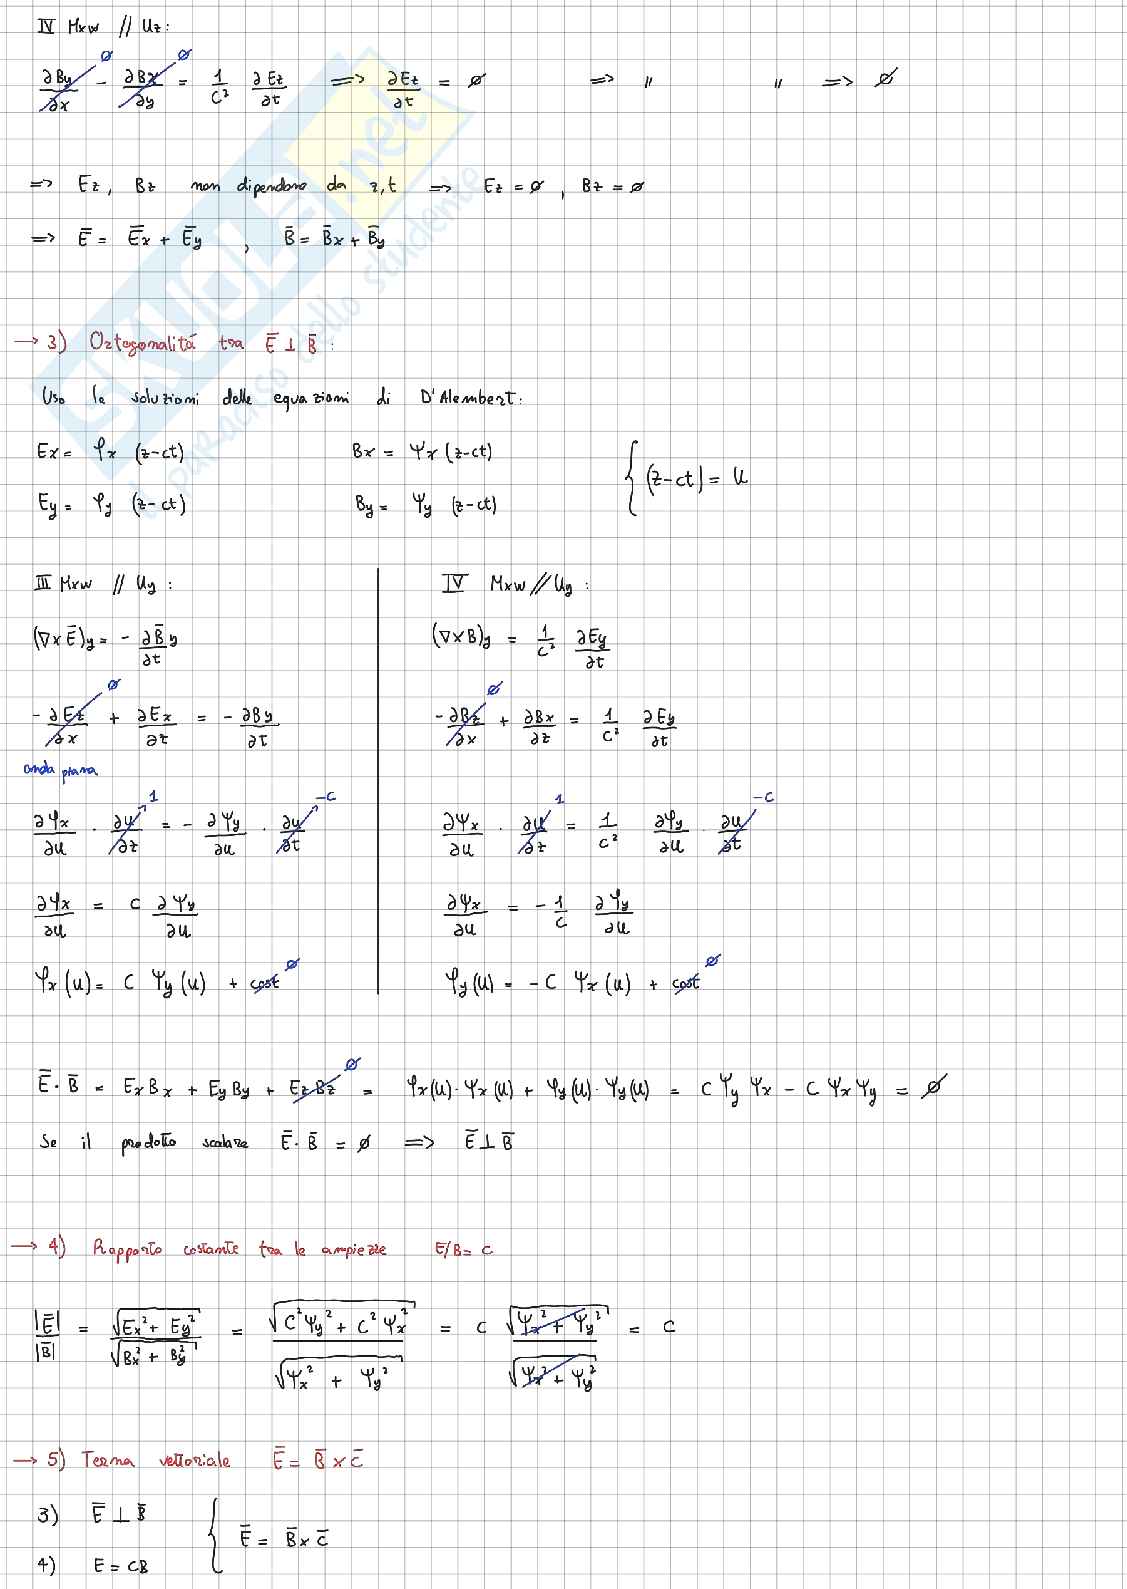 IV Mxw // Uz:
∂By/∂x - ∂Bx/∂y = 1/c² ∂Ez/∂t => ∂Ez/∂t = ∅ => " " => ∅
∅ ∅
=> Ez, Bz non dipendono da z,t => Ez = ∅, Bz = ∅
=> Ē = Ēx + Ēy , B̄ = B̄x + B̄y
→ 3) Ortogonalitá tra Ē ⊥ B̄ :
Uso le soluzioni delle equazioni di D'Alembert:
Ex = φx (z-ct) Bx = Ψx (z-ct)
Ey = φy (z-ct) By = Ψy (z-ct)
{ (z-ct) = u
III Mxw // Uy :
(∇×Ē)y = - ∂B̄y/∂t
- ∂Ez/∂x + ∂Ex/∂z = - ∂By/∂t
∅
onda piana
∂φx/∂u · ∂u/∂z = - ∂Ψy/∂u · ∂u/∂t
1 -c
∂φx/∂u = c ∂Ψy/∂u
φx(u) = c Ψy(u) + cost
∅
IV Mxw // Uy :
(∇×B)y = 1/c² ∂Ey/∂t
- ∂Bz/∂x + ∂Bx/∂z = 1/c² ∂Ey/∂t
∅
∂Ψx/∂u · ∂u/∂z = 1/c² ∂φy/∂u · ∂u/∂t
1 -c
∂Ψx/∂u = - 1/c ∂φy/∂u
φy(u) = - c Ψx(u) + cost
∅
Ē · B̄ = Ex Bx + Ey By + Ez Bz = φx(u)·Ψx(u) + φy(u)·Ψy(u) = c Ψy Ψx - c Ψx Ψy = ∅
∅
Se il prodotto scalare Ē · B̄ = ∅ => Ē ⊥ B̄
→ 4) Rapporto costante tra le ampiezze E/B = c
|Ē|/|B̄| = √(Ex² + Ey²)/√(Bx² + By²) = √(c²Ψy² + c²Ψx²)/√(Ψx² + Ψy²) = c √(Ψx² + Ψy²)/√(Ψx² + Ψy²) = c
→ 5) Terna vettoriale Ē = B̄ × c̄
3) Ē ⊥ B̄
4) E = cB
{ Ē = B̄ × c̄
SKUOLA.net
il paradiso dello studente